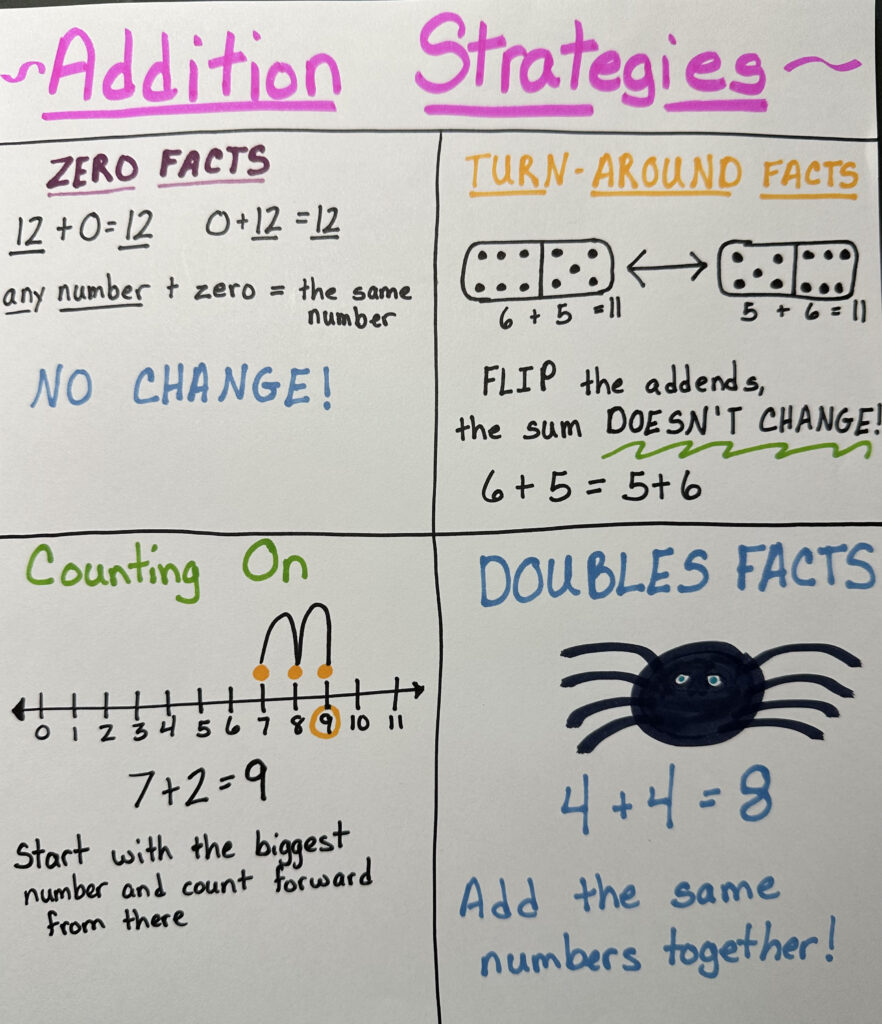 ~Addition Strategies~
ZERO FACTS
12 + 0 = 12 0 + 12 = 12
any number + zero = the same
number
NO CHANGE!
TURN-AROUND FACTS
6 + 5 = 11 5 + 6 = 11
FLIP the addends,
the sum DOESN'T CHANGE!
6 + 5 = 5 + 6
Counting On
0 1 2 3 4 5 6 7 8 9 10 11
7 + 2 = 9
Start with the biggest
number and count forward
from there
DOUBLES FACTS
4 + 4 = 8
Add the same
numbers together!